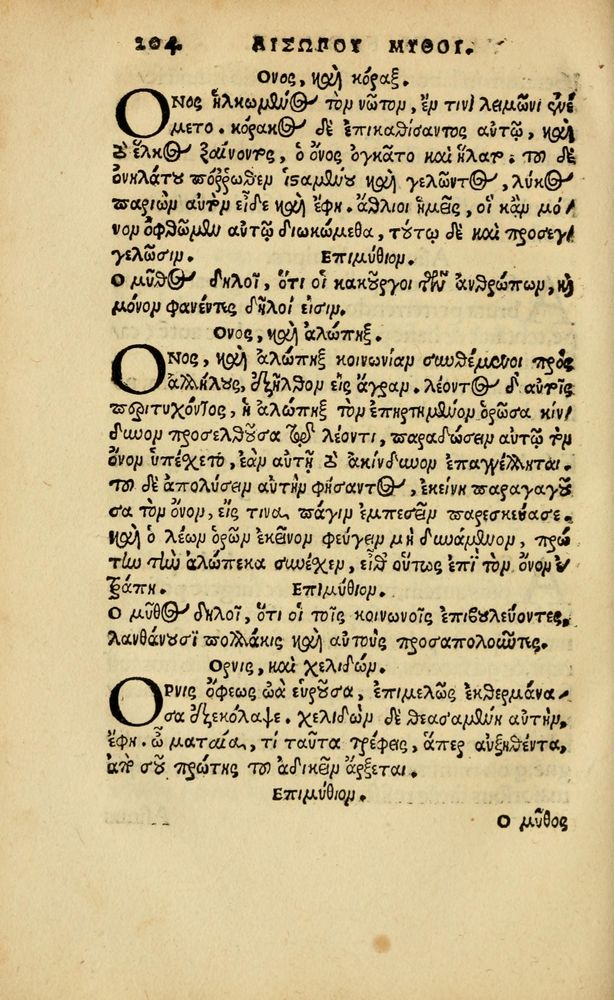 204 ΑΙΣΩΠΟΥ ΜΥΘΟΙ.
Ονος, καὶ κόραξ.
ΟΝος ἡλκωμένος τὸν νῶτον, ἔν τινι λειμῶνι ἐνέ-
μετο. κόρακος δὲ ἐπικαθίσαντος αὐτῷ, καὶ
τὸ ἕλκος ξαίνοντος, ὁ ὄνος ὀγκᾶτο καὶ ἥλατο. τοῦ δὲ
ὀνηλάτου πόρρωθεν ἱσταμένου καὶ γελῶντος, λύκος
παριὼν αὐτὸν εἶδε καὶ ἔφη. ἄθλιοι ἡμεῖς, οἳ κἂν μό-
νον ὀφθῶμεν αὐτῷ διωκώμεθα, τούτῳ δὲ καὶ προσεγ-
γελῶσιν. Επιμύθιον.
Ο μῦθος δηλοῖ, ὅτι οἱ κακοῦργοι τῶν ἀνθρώπων, καὶ
μόνον φανέντες δῆλοί εἰσιν.
Ονος, καὶ ἀλώπηξ.
ΟΝος, καὶ ἀλώπηξ κοινωνίαν συνθέμενοι πρὸς
ἀλλήλους, ἐξῆλθον εἰς ἄγραν. λέοντος δ' αὐτοῖς
περιτυχόντος, ἡ ἀλώπηξ τὸν ἐπηρτημένον ὁρῶσα κίν-
δυνον προσελθοῦσα τῷ λέοντι, παραδώσειν αὐτῷ τὸν
ὄνον ὑπέχετο, ἐὰν αὐτῇ τὸ ἀκίνδυνον ἐπαγγέλληται.
τοῦ δὲ ἀπολύσειν αὐτὴν φήσαντος, ἐκείνη παραγαγοῦ-
σα τὸν ὄνον, εἴς τινα πάγην ἐμπεσεῖν παρεσκεύασε.
καὶ ὁ λέων ὁρῶν ἐκεῖνον φεύγειν μὴ δυνάμενον, πρώ
την τὴν ἀλώπεκα συνέχεν, εἶθ' οὕτως ἐπὶ τὸν ὄνον ἐ-
τράπη. Επιμύθιον.
Ο μῦθος δηλοῖ, ὅτι οἱ τοῖς κοινωνοῖς ἐπιβουλεύοντες,
λανθάνουσι πολλάκις καὶ αὑτοὺς προσαπολοιῶντες.
Ορνις, καὶ χελιδών.
ΟΡνις ὄφεως ὠὰ εὑροῦσα, ἐπιμελῶς ἐκθερμάνα-
σα ἐξεκόλαψε. χελιδὼν δὲ θεασαμένη αὐτὴν,
ἔφη. ὦ ματαία, τί ταῦτα τρέφεις, ἅπερ αὐξηθέντα,
ἀπὸ σοῦ πρώτης τοῦ ἀδικεῖν ἄρξεται.
Επιμύθιον.
Ο μῦθος